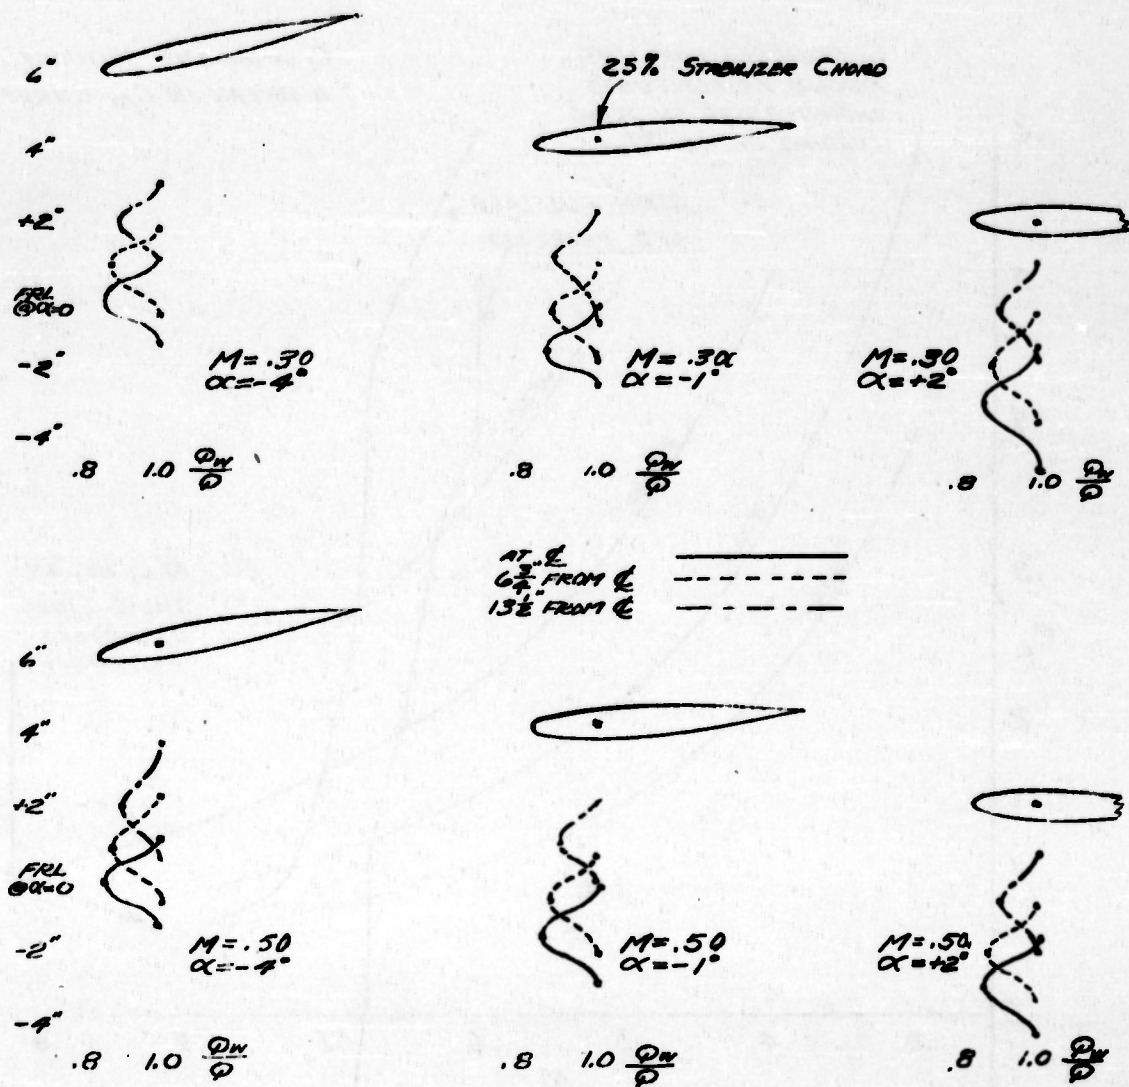 6"
25% STABILIZER CHORD
4"
+2"
FRL
@α=0
-2"
M=.30
α=-4°
M=.30
α=-1°
M=.30
α=+2°
-4"
.8 1.0 Qw/Q
.8 1.0 Qw/Q
.8 1.0 Qw/Q
AT ℄
6 3/4" FROM ℄
13 1/2" FROM ℄
6"
4"
+2"
FRL
@α=0
-2"
M=.50
α=-4°
M=.50
α=-1°
M=.50
α=+2°
-4"
.8 1.0 Qw/Q
.8 1.0 Qw/Q
.8 1.0 Qw/Q